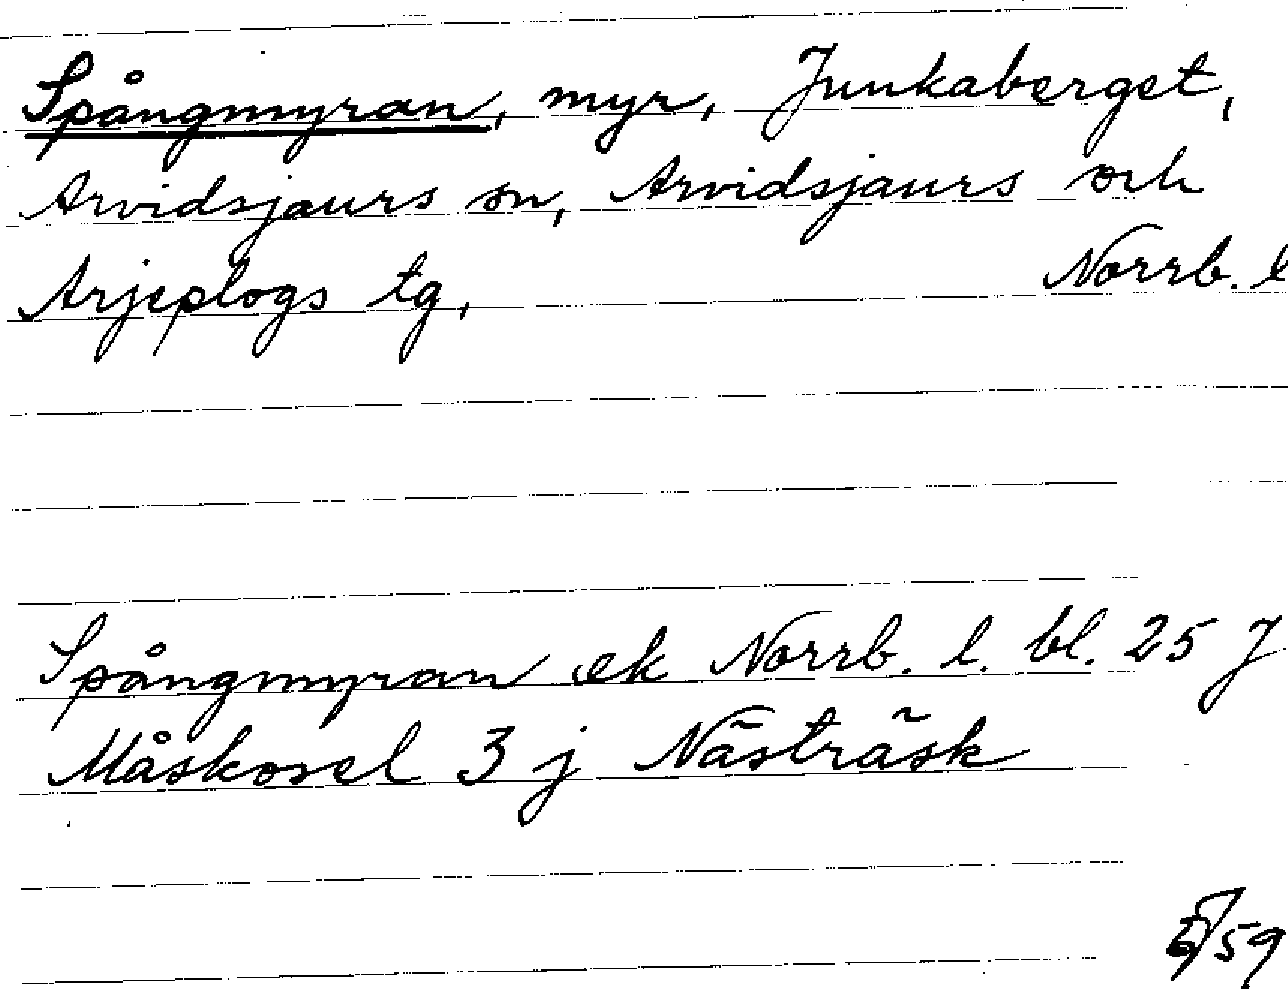 Spångmyran, myr, Junkaberget,
Arvidsjaurs sn, Arvidsjaurs och
Arjeplogs tg,   Norrb. l
Spångmyran ek Norrb. l. bl. 25 J
Måskosel 3 j Nästräsk
/59